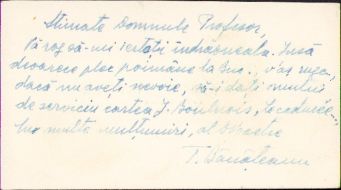 Stimate Domnule Profesor,
Vă rog să-mi iertați îndrăzneala. Însă
deoarece plec poimâne la Buc., v'aș ruga,
dacă nu aveți nevoie, să-i dați omului
de serviciu cartea J.
Cu multe mulțumiri, al Dvoastre
T. Bănățeanu